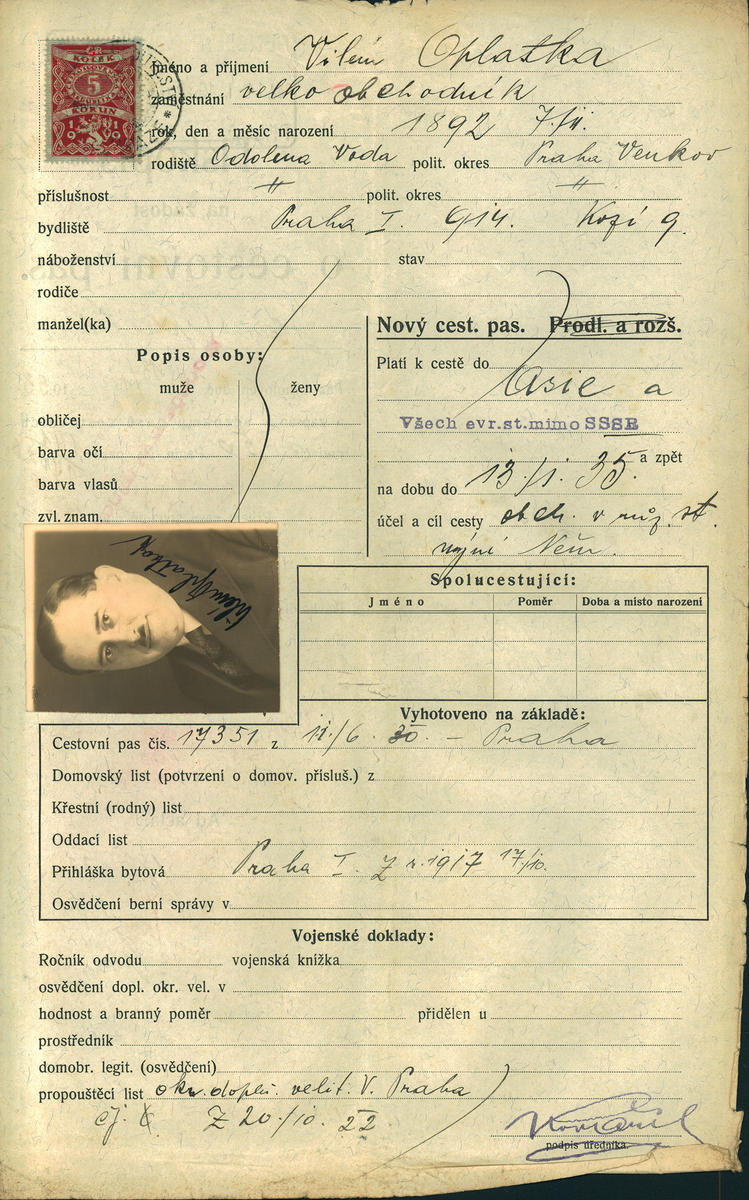 Č.R.
KOLEK
5
KORUN
1919
Jméno a příjmení Vilém Oplatka
zaměstnání velkoobchodník
rok, den a měsíc narození 1892 7./II.
rodiště Odolena Voda polit. okres Praha Venkov
příslušnost " polit. okres "
bydliště Praha I. 914. Kozí 9.
náboženství stav
rodiče
manžel(ka)
Nový cest. pas. Prodl. a rozš.
Popis osoby:
muže ženy
obličej
barva očí
barva vlasů
zvl. znam.
Platí k cestě do
Asie a
Všech evr.st.mimo SSSR
a zpět
na dobu do 13./I. 35.
účel a cíl cesty obch. v růz. st.
nyní Něm.
Vilém Oplatka
Spolucestující:
Jméno Poměr Doba a místo narození
Vyhotoveno na základě:
Cestovní pas čís. 17351 z 11./6. 30. – Praha
Domovský list (potvrzení o domov. přísluš.) z
Křestní (rodný) list
Oddací list
Přihláška bytová Praha I. Z r. 1917 17/10.
Osvědčení berní správy v
Vojenské doklady:
Ročník odvodu vojenská knížka
osvědčení dopl. okr. vel. v
hodnost a branný poměr přidělen u
prostředník
domobr. legit. (osvědčení)
propouštěcí list okr. doplň. velit. V. Praha
Z 20./10. 22
podpis úředníka.